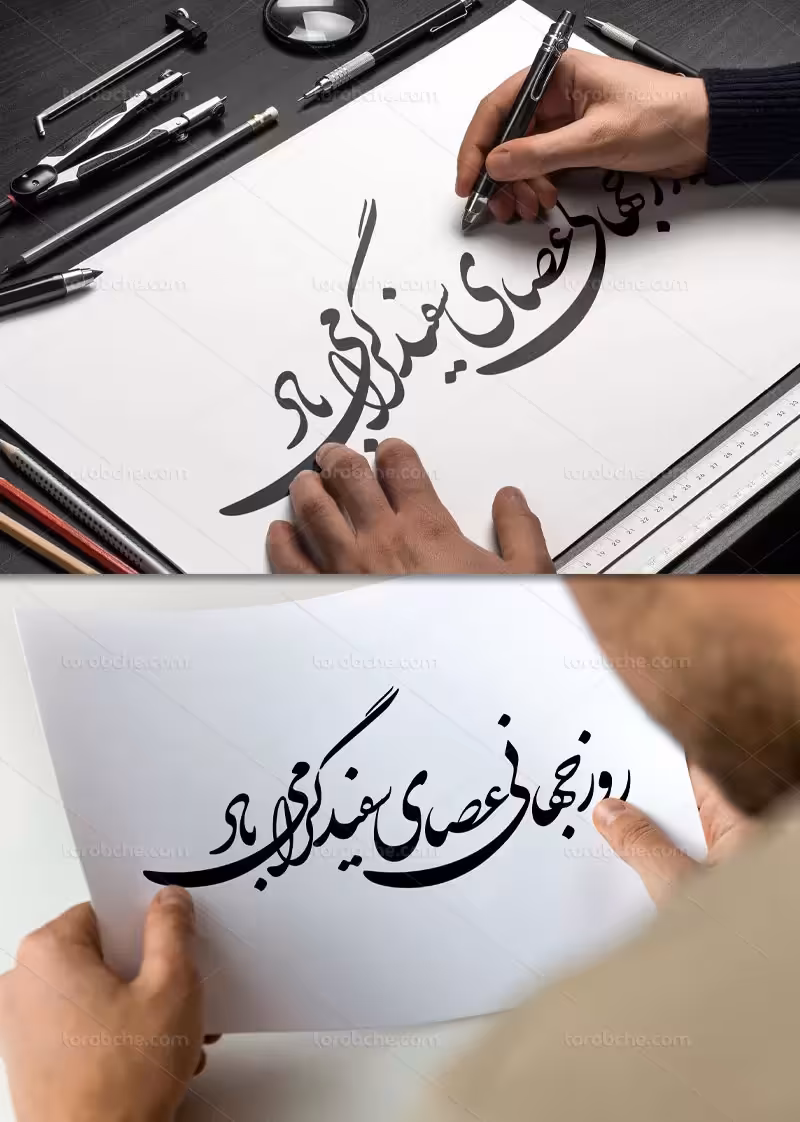 torobche.com torobche.com torobche.com
روز جهانی عصای سفید گرامی باد
torobche.com torobche.com torobche.com
torobche.com torobche.com torobche.com
torobche.com torobche.com torobche.com
روز جهانی عصای سفید گرامی باد
torobche.com torobche.com torobche.com
torobche.com torobche.com torobche.com